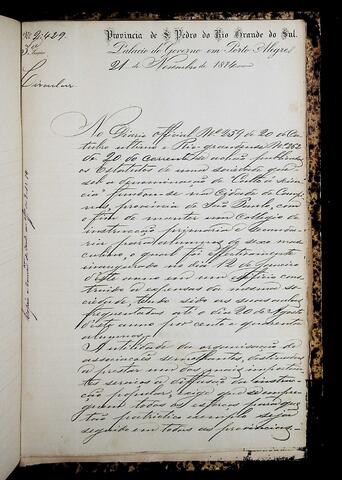 Nº 2:429.
Provincia de S. Pedro do Rio Grande do Sul.
3ª Secção
Palacio do Governo em Porto Alegre,
21 de Novembro de 1874
Circular
No Diario Official Nº 259 de 20 de Ou-
tubro ultimo e Rio-grandense Nº 252
de 20 do corrente se achão publicados
os Estatutos de uma sociedade que
sob a denominação de "Culto á Scien-
cia" fundou-se na Cidade de Campi-
nas, provincia de São Paulo, com
o fim de manter um collegio de
instrucção primaria e secunda-
ria para alumnos do sexo mas-
culino, o qual foi effectivamente
inaugurado no dia 12 de Janeiro
d'este anno em um edificio
construido a expensas da mesma so-
ciedade, tendo sido as suas aulas
frequentadas até o dia 20 de Agosto
d'este anno por cento e quarenta
alumnos.
A utilidade da organisação de
associações semelhantes, destinadas
a prestar um dos mais importan-
tes serviços á diffusão da instruc-
ção popular, exige que se empre-
guem todos os esforços para que
tão patriotico exemplo seja
seguido em todas as provincias.